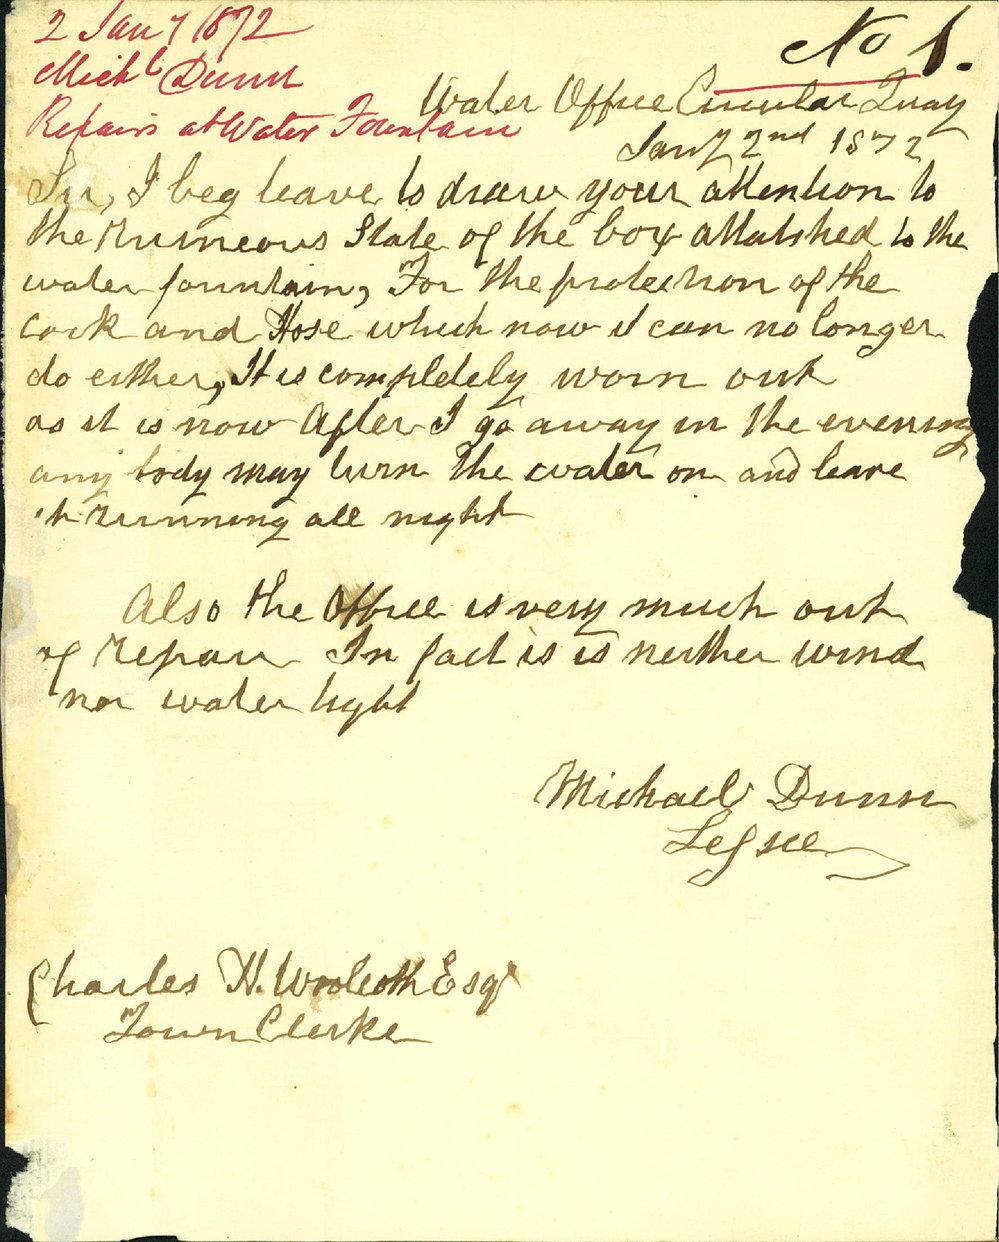 2 Jany 1872
Michl Dunn
Repairs at Water Fountain
No 1.
Water Office Circular Quay
Jany 2nd 1872
Sir, I beg leave to draw your attention to
the ruineous State of the box attatshed to the
water fountain, For the protection of the
cock and Hose which now it can no longer
do either, It is compldely worn out
as it is now After I go away in the evening
any body may turn the water on and leave
it running all night
Also the Office is very much out
of repair In fact is is neither wind
nor water tight
Michael Dunn
Lessee
Charles H. Woolcott Esqr
Town Clerke